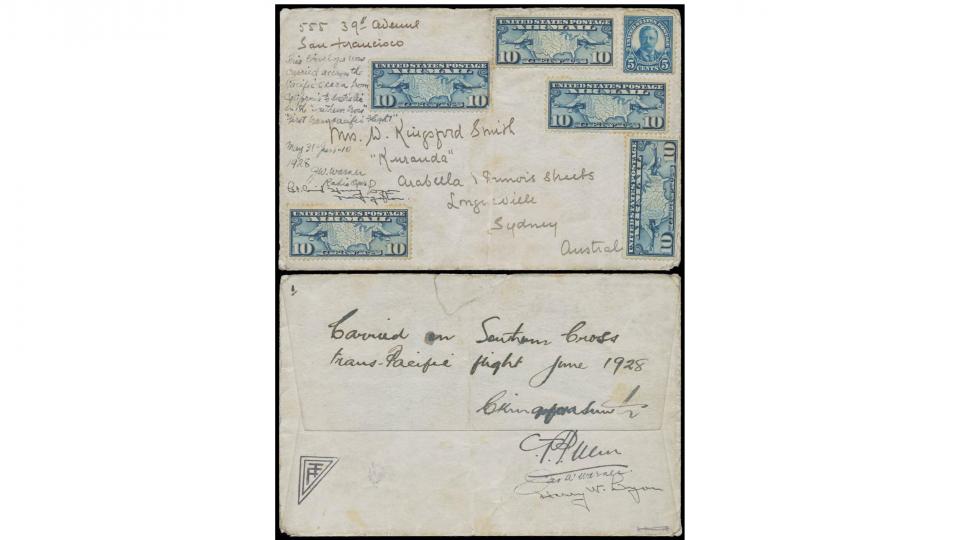 555 39th Avenue
San Francisco
This Envelope was
carried across the
Pacific Ocean from
California to Australia
in the "Southern Cross"
"First Trans Pacific Flight"
May 31 - June 10
1928
J.W. Warner
Radio Oper
UNITED STATES POSTAGE
AIR MAIL
10 CENTS 10
UNITED STATES POSTAGE
AIR MAIL
10 CENTS 10
5 CENTS 5
UNITED STATES POSTAGE
AIR MAIL
10 CENTS 10
UNITED STATES POSTAGE
AIR MAIL
10 CENTS 10
UNITED STATES POSTAGE
AIR MAIL
10 CENTS 10
Mrs. W. Kingsford Smith
"Kuranda"
Arabella & Streets
Longueville
Sydney
Austral
Carried on Southern Cross
trans-Pacific flight June 1928
C Kingsford Smith
C.T.P. Ulm
Jas W. Warner
Harry W. Lyon